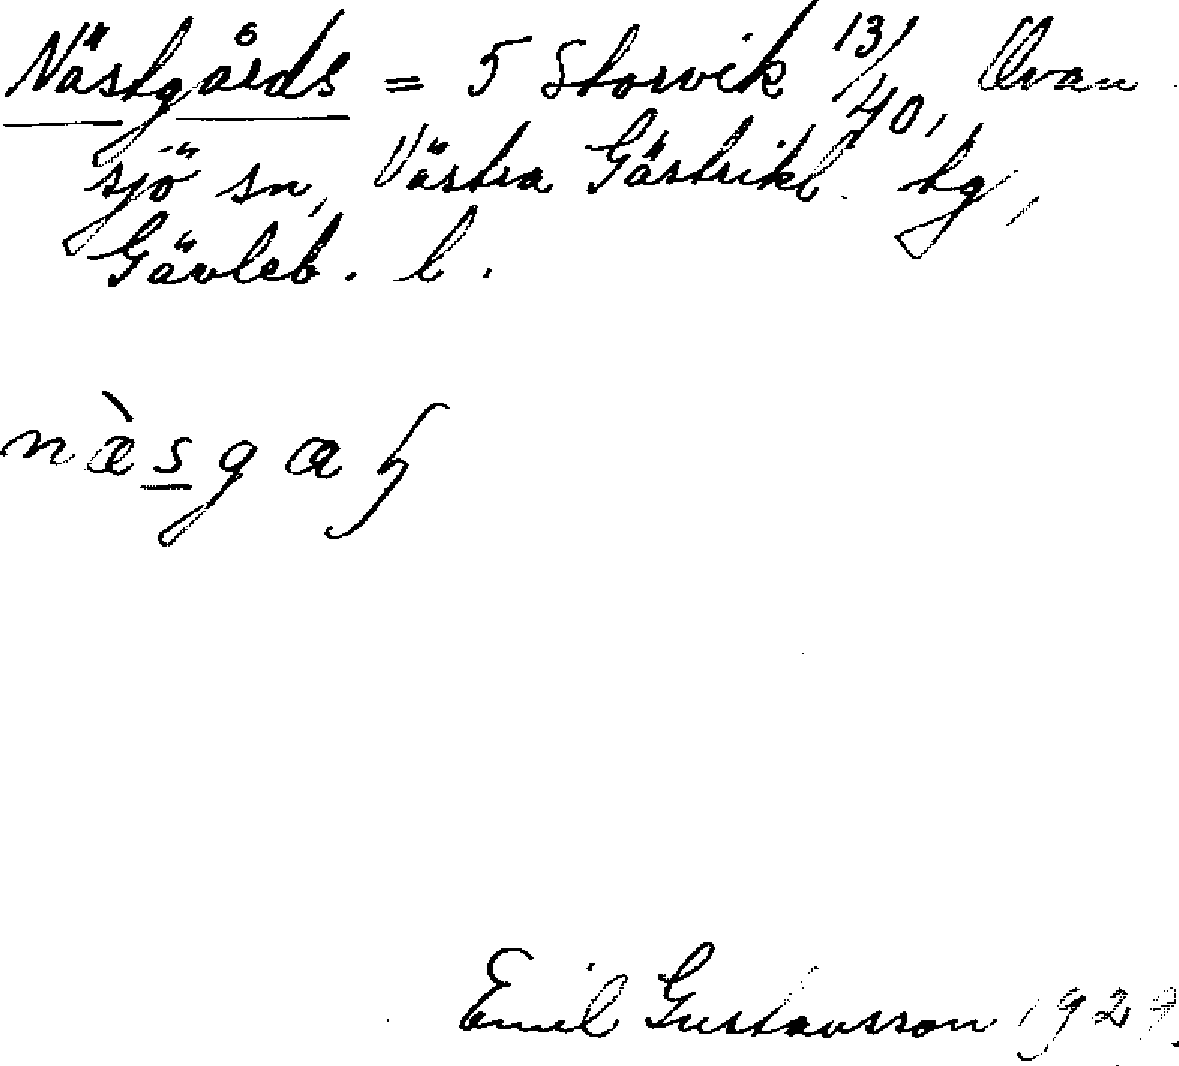 Nästgårds = 5 Storvik 13/40, Ovan-
sjö sn, Västra Gästrikl. tg,
Gävleb. l.
næ̀s̲gaʂ
Emil Gustavsson 1927.